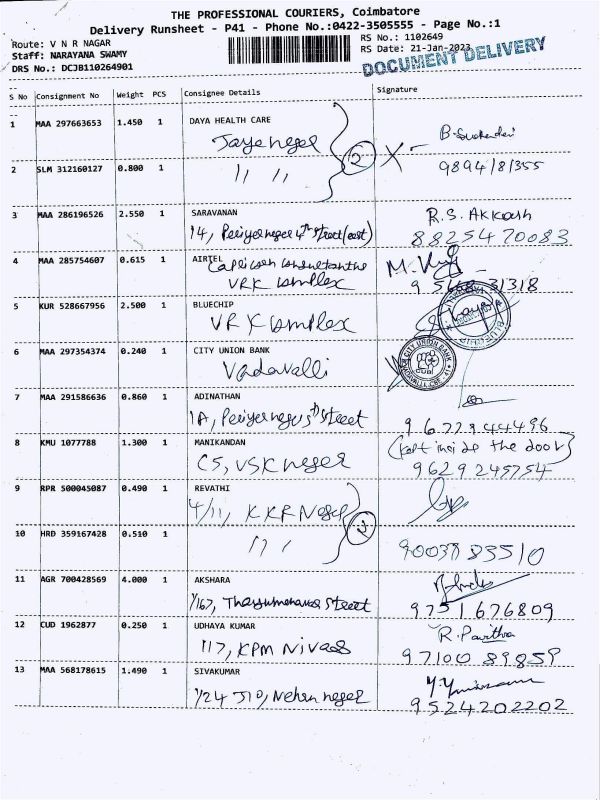 THE PROFESSIONAL COURIERS, Coimbatore
Delivery Runsheet - P41 - Phone No.:0422-3505555 - Page No.:1
Route: V N R NAGAR
Staff: NARAYANA SWAMY
DRS No.: DCJB110264901
RS No.: 1102649
RS Date: 21-Jan-2023
DOCUMENT DELIVERY
S No Consignment No Weight PCS Consignee Details Signature
1 MAA 297663653 1.450 1 DAYA HEALTH CARE
Jayanager
2 SLM 312160127 0.800 1 11 11 2 X 9894181355
3 MAA 286196526 2.550 1 SARAVANAN R.S. Akkash
14, Periyarnager 4th street (east) 8825470083
4 MAA 285754607 0.615 1 AIRTEL
VRK complex 31318
5 KUR 528667956 2.500 1 BLUECHIP
VRK complex
6 MAA 297354374 0.240 1 CITY UNION BANK CITY UNION BANK
Vadavalli
7 MAA 291586636 0.860 1 ADINATHAN
1A, 5th street
8 KMU 1077788 1.300 1 MANIKANDAN (kept inside the door)
C5, VSK nager 9629245754
9 RPR 500045087 0.490 1 REVATHI
4/11, K K R Nager
10 HRD 359167428 0.510 1 11 1 9003783510
11 AGR 700428569 4.000 1 AKSHARA
1/167, street 9751676809
12 CUD 1962877 0.250 1 UDHAYA KUMAR R. Pavithra
117, KPM Nivas 9710089859
13 MAA 568178615 1.490 1 SIVAKUMAR
1/24 Nehru nager 9524202202